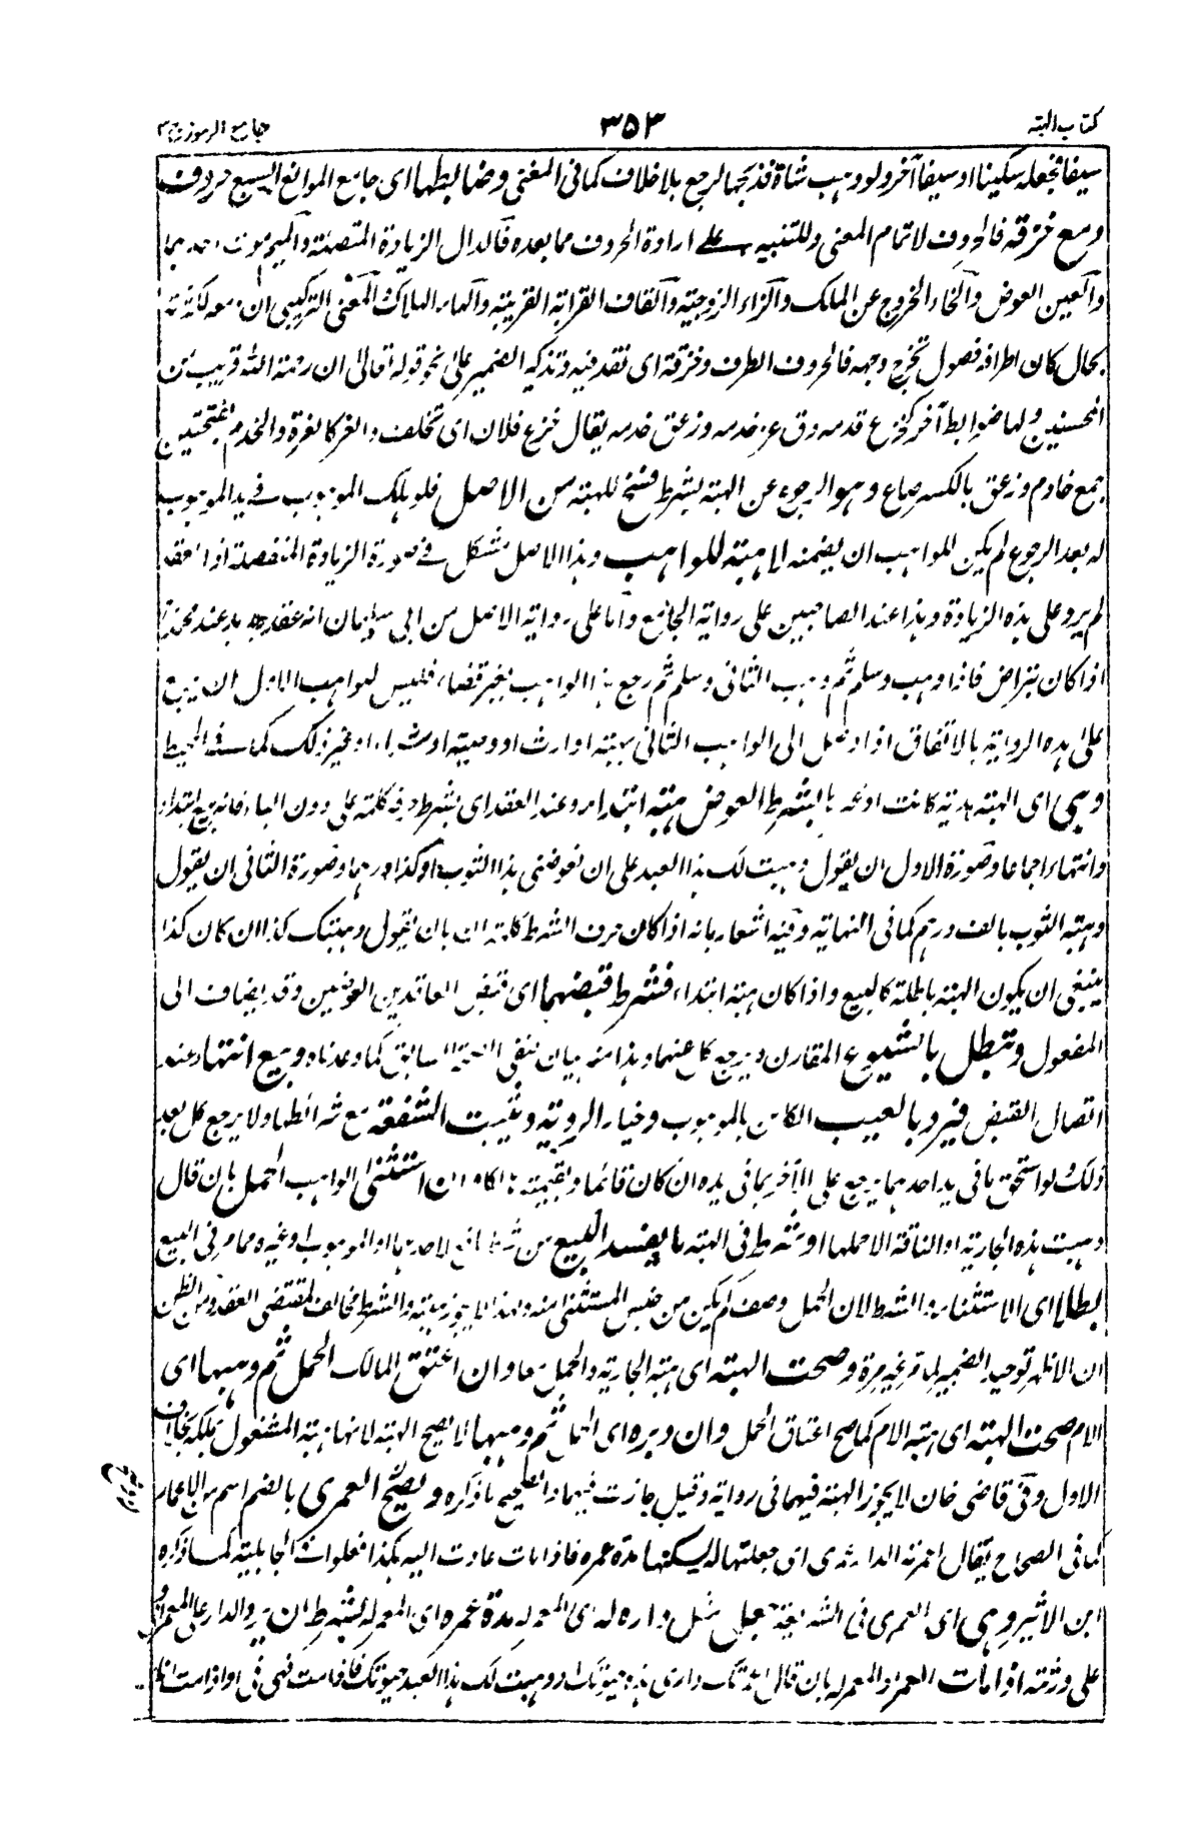 كتاب الهبة
٣٥٣
جامع الرموز ج ٣
سيفا فجعله سكينا او سيفا آخر ولو وهب شاة فذبحها لرجع بلا خلاف كما فى المغنى وضابطها اى جامع الموانع السبع حروف
دمع خزقه فالحروف لاتمام المعنى وللتنبيه على ارادة الحروف مما بعده فالدال الزيادة المتصلة والميم موت احدهما
والعين العوض والخاء الخروج عن الملك والزاء الزوجية والقاف القرابة القريبة والهاء الهلاك والمعنى التركيبى ان دمعه كانه
بحال كان اطرافه فصول تخرج وجهه فالحروف الطرف وخزقه اى نقد فيه وتذكير الضمير على نحو قوله تعالى ان رحمة الله قريب من
المحسنين ولها ضوابط آخر كخزع قدمه يقال خزع فلان اى تخلف والخدم بفتحتين
جمع خادم وزعق بالكسر صاع وهو الرجوع عن الهبة بشرط فسخ للهبة من الاصل فلو هلك الموهوب فى يد الموهوب
له بعد الرجوع لم يكن للواهب ان يضمنه لا هبة للواهب وهذا الاصل مشكل فى صورة الزيادة المنفصلة اذ العقد
لم يرد على هذه الزيادة وهذا عند الصاحبين على رواية الجامع واما على رواية الاصل من ابى سليمان انه عقد جديد عند محمد
اذا كان بتراض فاذا وهب وسلم ثم وهب الثانى وسلم ثم رجع هذا الواهب بغير قضاء فليس للواهب الاول ان يرجع
على هذه الرواية بالاتفاق اذا وصل الى الواهب الثانى بهبة او ارث او وصية او شراء او غير ذلك كما فى المحيط
وهى اى الهبة هدية كانت او غيرها بالشرط العوض هبة ابتداء وعند العقد اى بشرط فيه كلمة على دون الباء فانه بيع ابتداء
وانتهاء اجماعا وصورة الاول ان يقول وهبت لك هذا العبد على ان تعوضنى هذا الثوب او كذا درهما وصورة الثانى ان يقول
وهبته الثوب بالف درهم كما فى النهاية وفيه اشعار بانه اذا كان حرف الشرط كلمة ان بان يقول وهبتك كذا ان كان كذا
ينبغى ان يكون الهبة باطلة كالبيع واذا كان هبة ابتداء فشرط قبضهما اى قبض العاقدين العوضين وقد يضاف الى
المفعول وتبطل بالشيوع المقارن ويرجع كل عنهما وهذا منه بيان لنفى الصحة السابق كما وعدناه وبيع انتهاء عند
اتصال القبض فيرد بالعيب الكائن بالموهوب وخيار الروية وتثبت الشفعة مع شرائطها ولا يرجع كل بعد
ذلك ولو استحق ما فى يد احدهما يرجع على الآخر بما فى يده ان كان قائما وبقيمته هالكا وان استثنى الواهب الحمل بان قال
وهبت هذه الجارية او الناقة الا حملها او شرط فى الهبة ما يفسد البيع من شرط نافع لاحدهما او الموهوب او غيره مما مر فى البيع
بطلا اى الاستثناء والشرط لان الحمل وصف لم يكن من جنس المستثنى منه ولهذا لا يجوز هبته والشرط مخالف لمقتضى العقد ومن الظن
ان الاظهر توحيد الضمير لما مر غير مرة وصحت الهبة اى هبة الجارية والحمل معا وان اعتق المالك الحمل ثم وهبها اى
الام صحت الهبة اى هبة الام كما صح اعتاق الحمل وان دبره اى الحمل ثم وهبها لا يصح الهبة لانها هبة المشغول بملكه بخلاف
الاول وفى قاضى خان لا يجوز الهبة فيهما فى رواية وقيل جازت فيهما والصحيح ما ذكره وتصح العمرى بالضم اسم من الاعمار
كما فى الصحاح يقال اعمرته الدار عمرى اى جعلتها له يسكنها مدة عمره فاذا مات عادت اليه هكذا فعلوا فى الجاهلية كما ذكره
ابن الاثير وهى اى العمرى فى الشريعة جعل مثل داره له اى للمعمر له مدة عمره اى المعمر له بشرط ان يرد الدار على المعمر او
على ورثته اذا مات المعمر والمعمر له بان قال اعمرتك دارى هذه حيوتك او وهبت لك هذا العبد حيوتك فاذا مت فهى لى او اذا مت انا